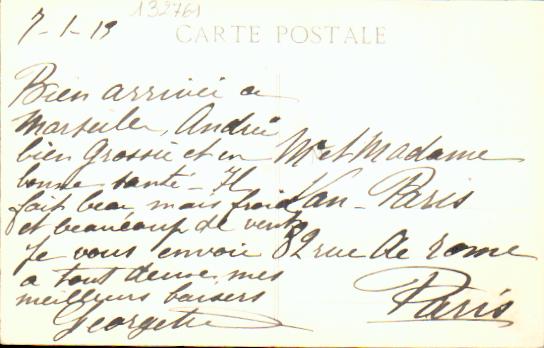 132761
7-1-19
CARTE POSTALE
Bien arrivée a
Marseille, André
bien Grossi et en
bonne santé - Il
fait beau, mais froid
et beaucoup de vent
Je vous envoie
a tout deux, mes
meilleurs baisers
Georgette
Mr et Madame
Van-Paris
82 rue de rome
Paris